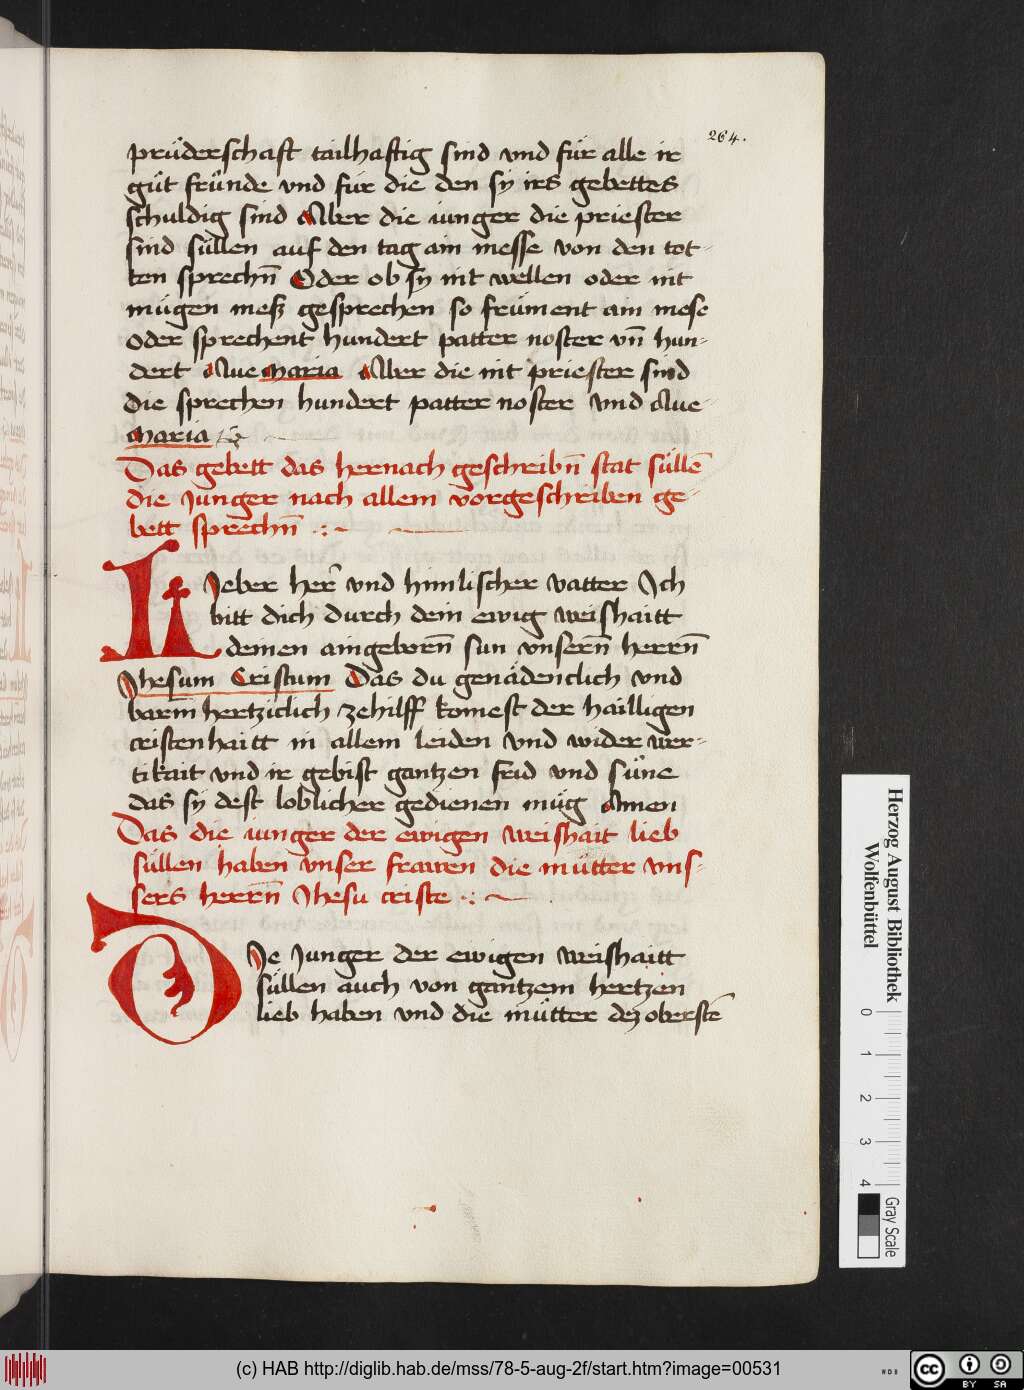 264.
prüderschaft tailhaftig sind vnd für alle ir
gůt fründe vnd für die den sy irs gebettes
schuldig sind Aber die iunger die priester
sind süllen auf den tag ain messe von den tot-
ten sprechn̄ Oder ob sy nit wellen oder nit
mügen meß gesprechen so früment ain mese
oder sprechent hundert patter noster vn̄ hun-
dert Aue maria Aber die nit priester sind
die sprechen hundert patter noster vnd Aue-
maria
Das gebett das hernach geschribn̄ stat süllē
die Junger nach allem vorgeschriben ge-
bett sprechn̄
LIeber her̄ vnd himlischer vatter Ich
bitt dich durch dein ewig weishaitt
deinen aingeborn̄ sun vnsern̄ herrn̄
Jhesum Cristum Das du genädenclich vnd
barmhertziclich zehilff komest der hailligen
cristenhaitt in allem leiden vnd wider wer-
tikait vnd ir gebist gantzen frid vnd süne
das sy dest loblicher gedienen müg Amen
Das die iunger der ewigen weishait lieb
süllen haben vnser frawen die mütter vns-
sers herrn̄ Jhesu criste
DIe Junger der ewigen weishaitt
süllen auch von gantzem hertzen
lieb haben vnd die mütter dez oberstē
Herzog August Bibliothek
Wolfenbüttel
0 1 2 3 4
Gray Scale
(c) HAB http://diglib.hab.de/mss/78-5-aug-2f/start.htm?image=00531
cc BY SA